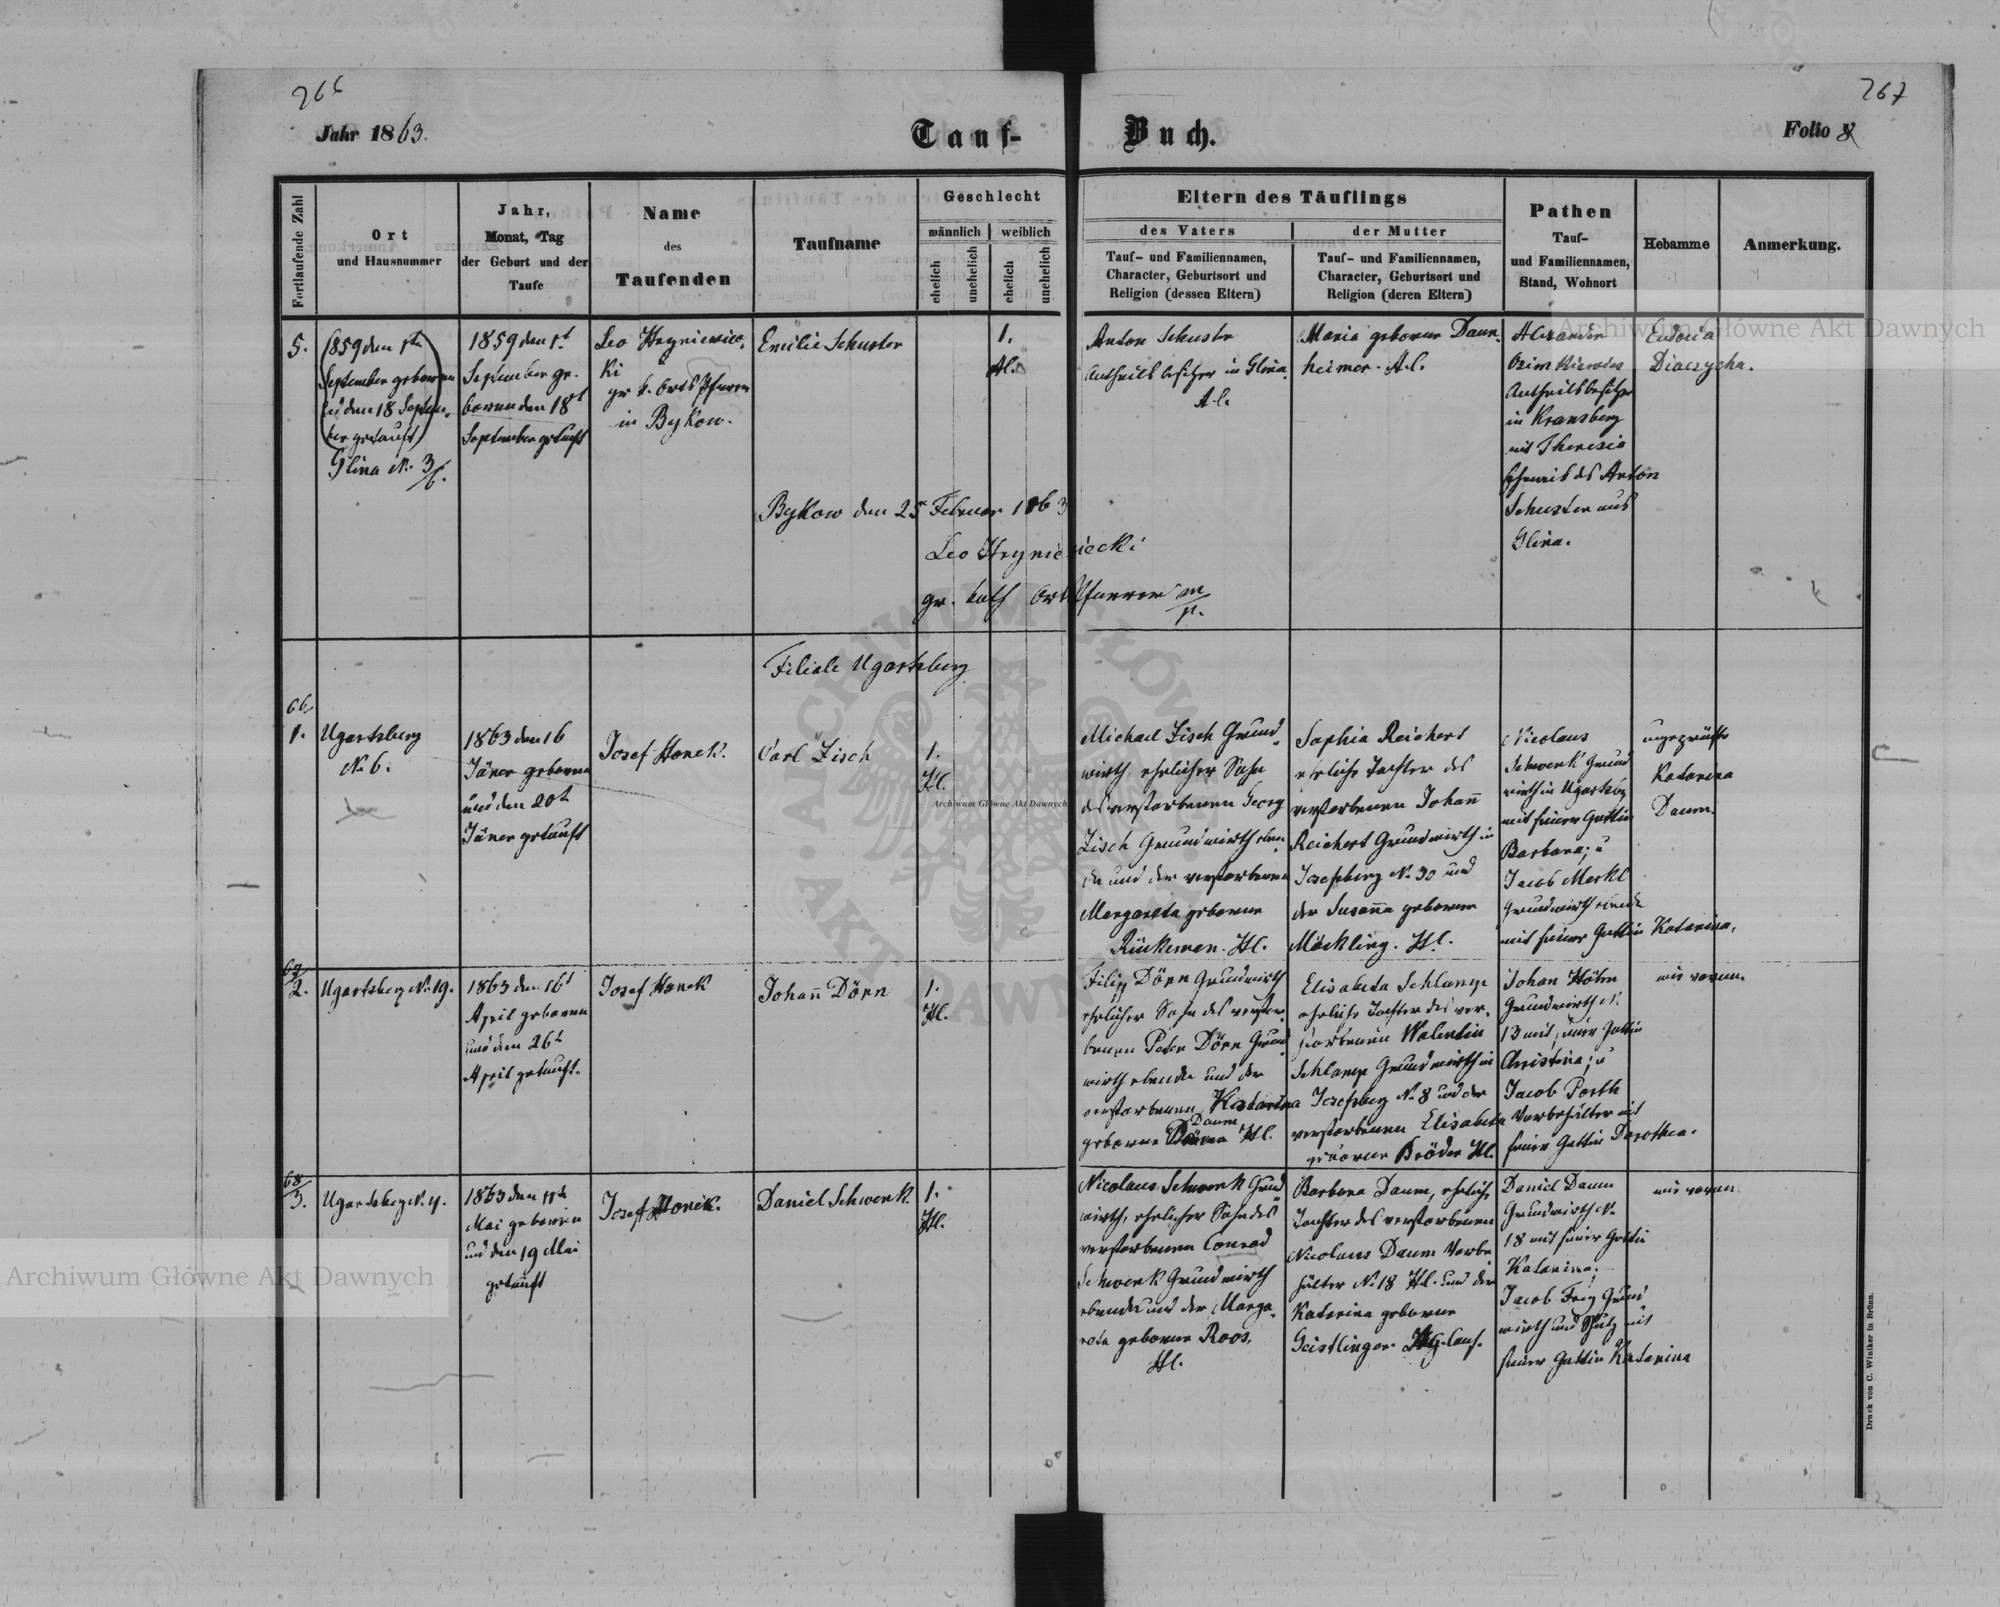 266
267
Jahr 1863.
Tauf-
Buch.
Folio 8
Fortlaufende Zahl
Ort
und Hausnummer
Jahr,
Monat, Tag
der Geburt und der
Taufe
Name
des
Taufenden
Taufname
Geschlecht
männlich
weiblich
ehelich
unehelich
ehelich
unehelich
Eltern des Täuflings
des Vaters
Tauf- und Familiennamen,
Character, Geburtsort und
Religion (dessen Eltern)
der Mutter
Tauf- und Familiennamen,
Character, Geburtsort und
Religion (deren Eltern)
Pathen
Tauf-
und Familiennamen,
Stand, Wohnort
Hebamme
Anmerkung.
5.
(1859 den 1te
September geboren
und den 18 Septem-
ber getauft)
Glina N. 3/6.
1859 den 1t
September ge-
boren den 18t
September getauft
Leo Hryniewiec-
ki
gr. k. Orts Pfarrer
in Bykow.
Emilie Schuster
1.
Al.
Anton Schuster
Antheilsbesitzer in Glina.
A.C.
Maria geborene Daun-
heimer. A.C.
Alexander
Antheilsbesitzer
in Kransberg
mit Theresia
Ehweib des Anton
Schuster aus
Glina.
Eudocia
Diaczycha.
Bykow den 25 Februar 1863
Leo Hryniewiecki
gr. kath Orts Pfarrer m/p.
Filiale Ugartsberg
66
1.
Ugartsberg
N. 6.
1863 den 16
Jäner geboren
und den 20t
Jäner getauft
Josef Honek.
Carl Zisch
1.
Hl.
Michael Zisch Grund-
wirth, ehelicher Sohn
des verstorbenen Georg
Zisch Grundwirth eben-
da und der verstorbenen
Margareta geborene
Rückeman. Hl.
Sophia Reichert
eheliche Tochter des
verstorbenen Johann
Reichert Grundwirth in
Josefsberg N. 30 und
der Susanna geborene
Möckling. Hl.
Nicolaus
Schwenk Grund
wirth in Ugartsbg
mit seiner Gattin
Barbara; u
Jacob Merkl
Grundwirth
mit seiner Gattin Katarina.
ungeprüfte
Katarina
Daum.
67
2.
Ugartsberg N. 19.
1863 den 16t
April geboren
und den 26t
April getauft.
Josef Honek
Johann Dörn
1.
Hl.
Filipp Dörn Grundwirth
ehelicher Sohn des verstor-
benen Peter Dörn Grund
wirth ebenda und der
verstorbenen Katarina
geborene Daum Hl.
Elisabeta Schlamp
eheliche Tochter des ver-
storbenen Walentin
Schlamp Grundwirth in
Josefsberg N. 8 und der
verstorbenen Elisabeta
geborene Bröder Hl.
Johan Höhn
Grundwirth N.
13 mit seiner Gattin
Christina; u
Jacob Porth
Vorbehälter mit
seiner Gattin Dorothea.
wie voran.
68
3.
Ugartsberg N. 4.
1863 den 11te
Mai geboren
und den 19 Mai
getauft
Josef Honek.
Daniel Schwenk
1.
Hl.
Nicolaus Schwenk Grund
wirth, ehelicher Sohn des
verstorbenen Conrad
Schwenk Grundwirth
ebenda und der Marga-
reta geborene Roos.
Hl.
Barbara Daum, eheliche
Tochter des verstorbenen
Nicolaus Daum Vorbe
hälter N. 18 Hl. und der
Katarina geborene
Geistlinger. Hlg. Conf.
Daniel Daum
Grundwirth N.
18 mit seiner Gattin
Katarina;
Jacob Freg Grund
wirth und mit
seiner Gattin Katarina
wie voran
Druck von C. Winiker in Brünn.
Archiwum Główne Akt Dawnych
Archiwum Główne Akt Dawnych
Archiwum Główne Akt Dawnych
ARCHIWUM GŁÓWNE AKT DAWNYCH